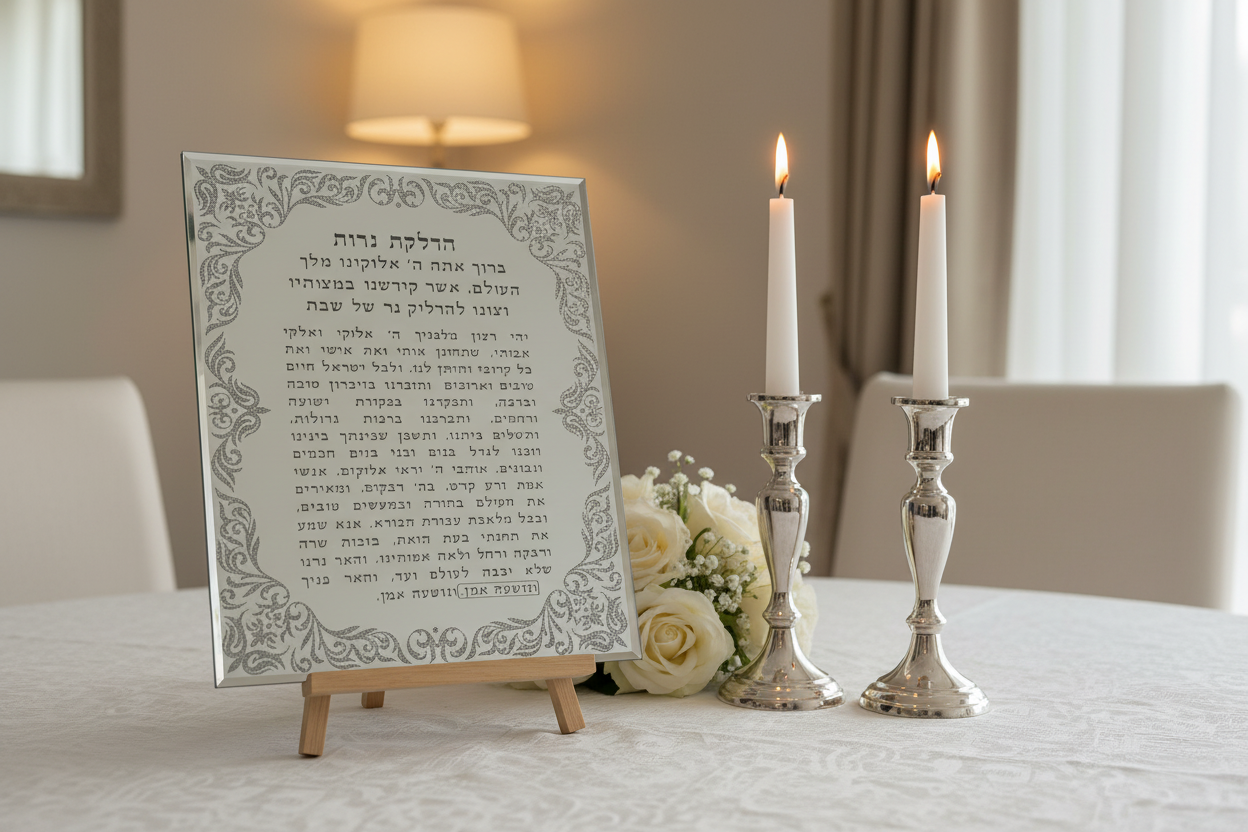 הדלקת נרות
ברוך אתה ה' אלוקינו מלך
העולם. אשר קירשנו במצותיו
וצונו להדליק נר של שבת
יהי רצון מלבניך ה' אלוקי ואלקי
אבותי, שתחונן אותי ואה אישי ואת
כל קרובי ותותן לנו. ולבל ישראל חיים
טובים וארוכים ותזברנו בזיברון טובה
וברבה, ותפקדנו בפקורת ישועה
ורחמים, ותברכנו ברכות גדולות,
ותשלים ביתנו, ותשבן שבינתך בינינו
וזכנו לגדל בנום ובני בנום חכמים
ונבונים. אוהבי ה' יראי אלוקים. אנשי
אמת ורע קדש. בה' דבקים, ומאורים
את העולם בתורה ובמעשים טובים,
ובכל מלאכת עבורת הבורא. אנא שמע
את תחנתי בעת הזאת, בזכות שרה
ורבקה ורחל ולאה אמותינו. והאר נרנו
שלא יכבה לעולם ועד, והאר פניך
ונושעה אמן. ונושעה אמן.